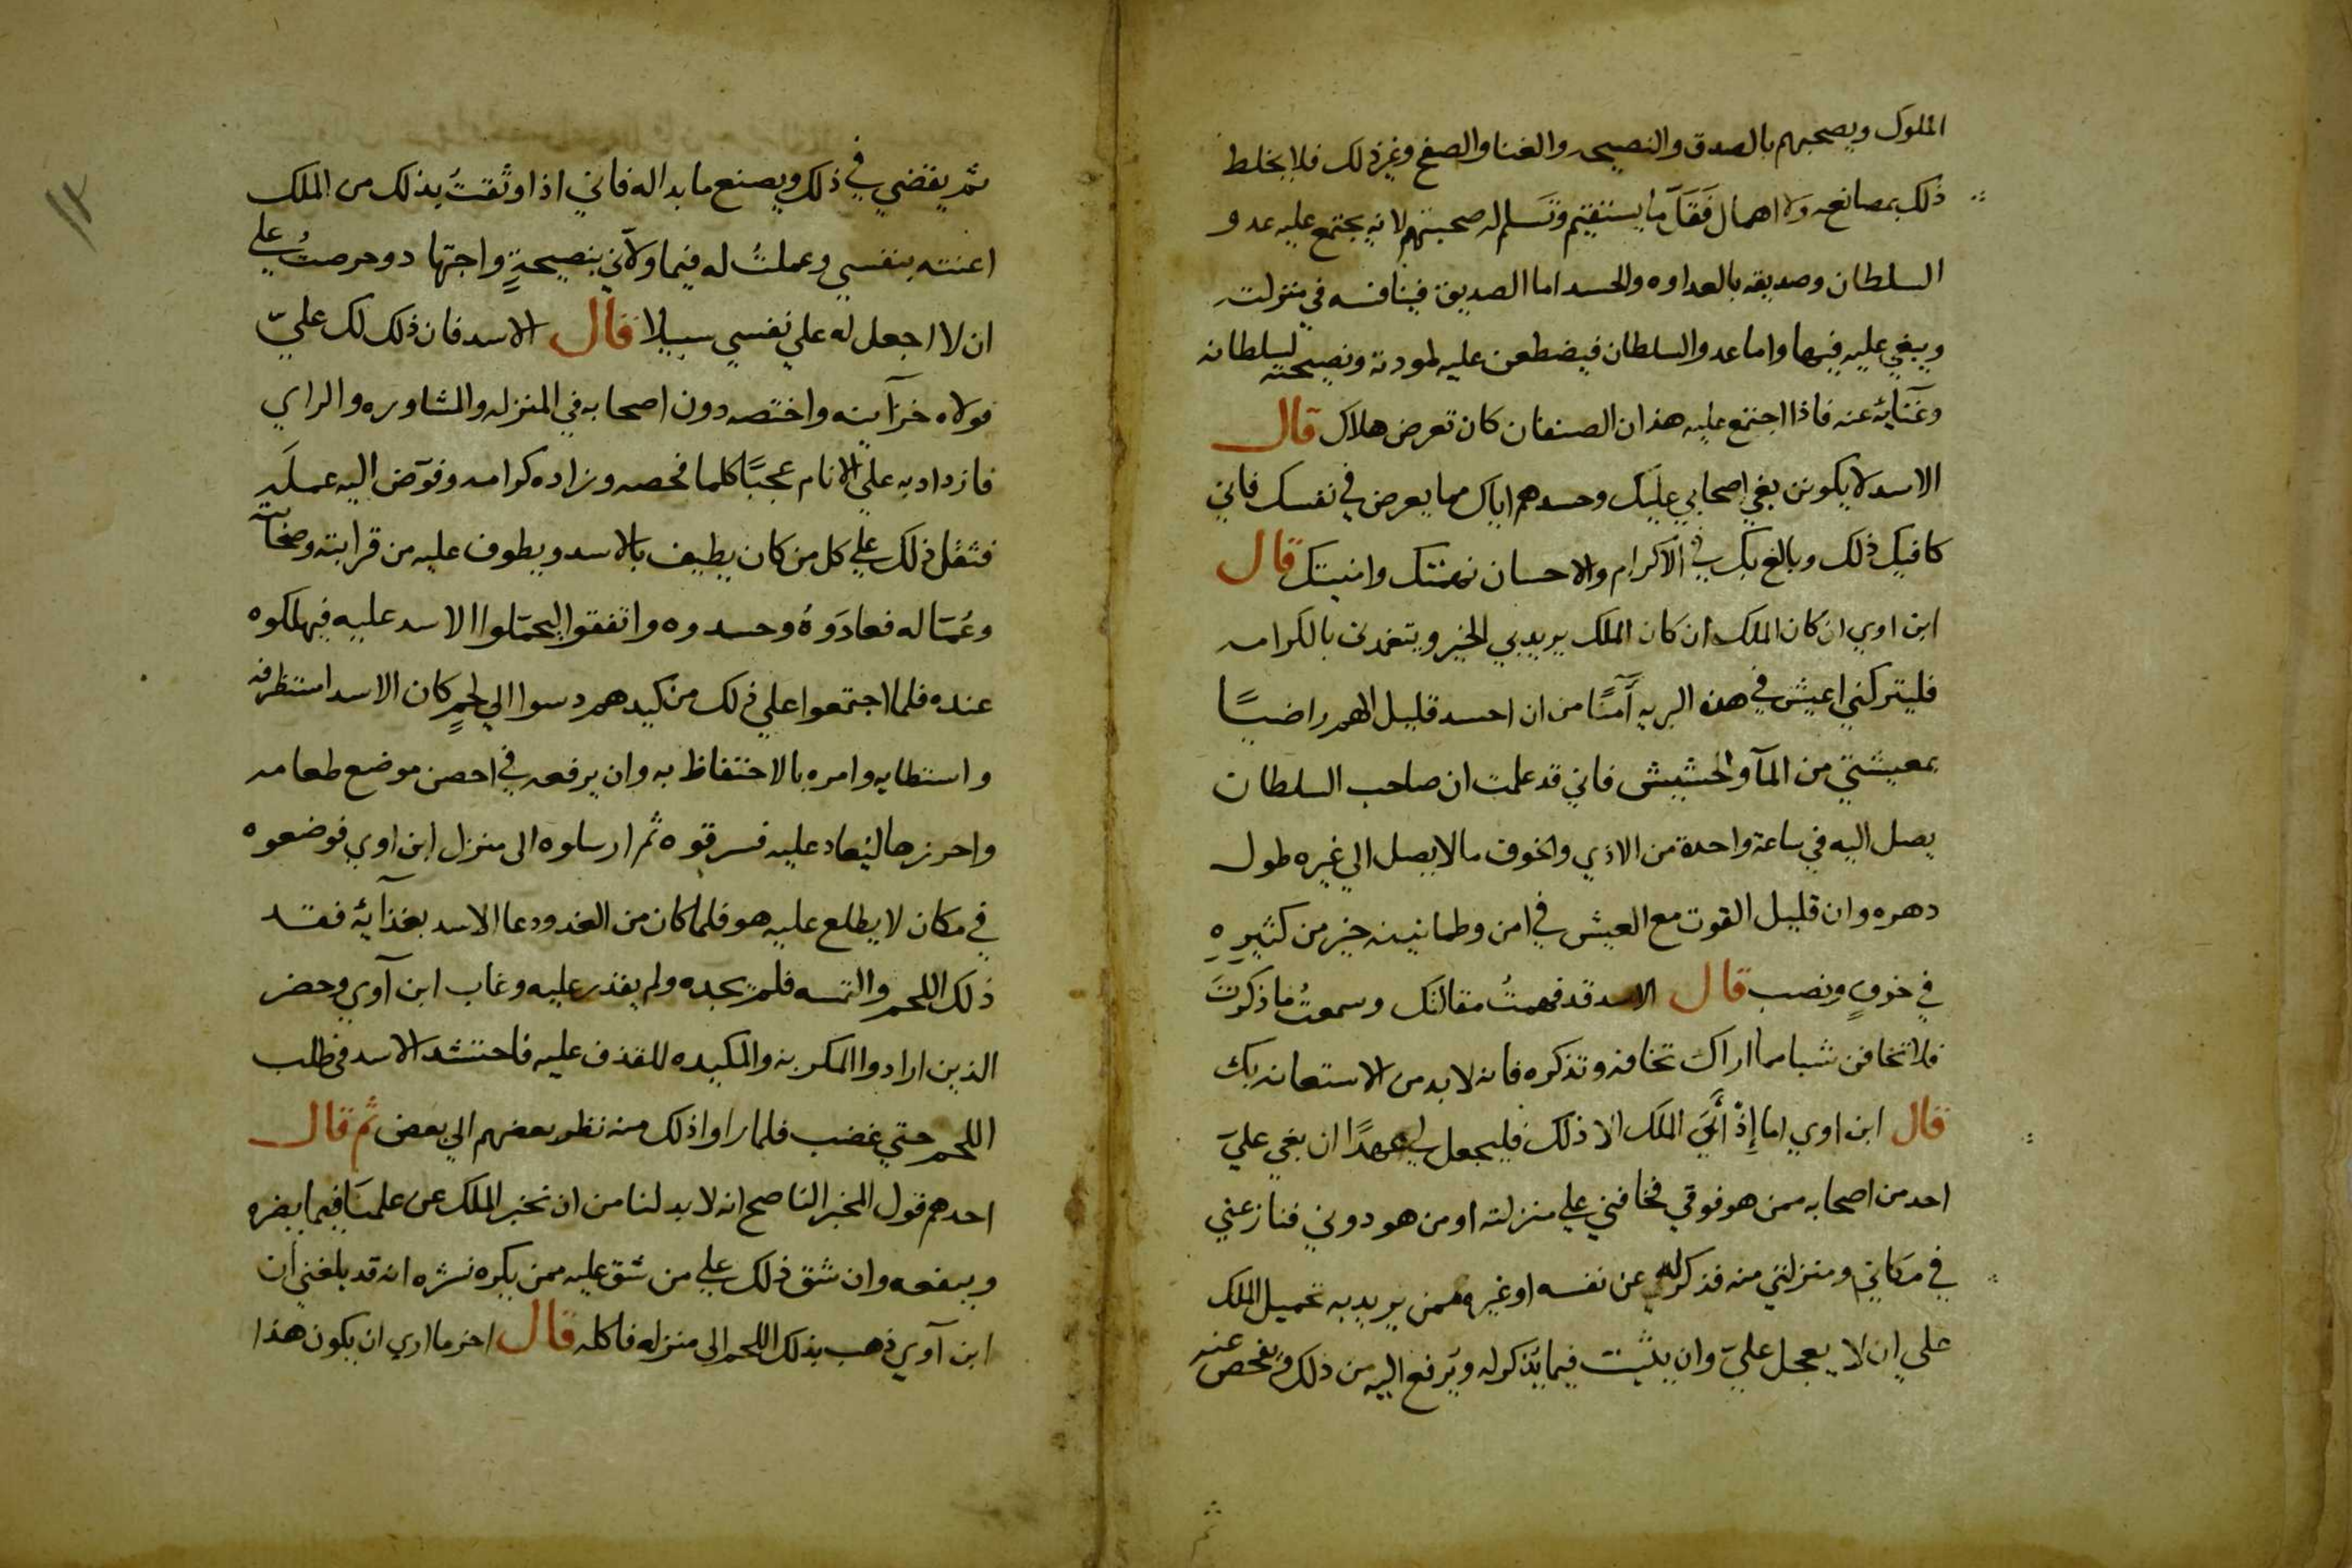 الملوك ويصحبهم بالصدق والنصيحه والغنا والصفح وغير ذلك فلا يخلط
ذلك بمصانعه ولا اهمال فَقَلَّ ما يستقيم وتسلم له صحبتهم لانه يجتمع عليه عدو
السلطان وصديقه بالعداوه والحسد اما الصديق فينافسه في منزلته
ويبغي عليه فيها واما عدو السلطان فيضطعن عليه لمودته ونصيحته لسلطانه
وغنايه عنه فاذا اجتمع عليه هذان الصنفان كان تعرض هلاك قال
الاسد لا يكونن بغي اصحابي عليك وحسدهم اياك مما يعرض في نفسك فاني
كافيك ذلك وبالغ بك في الاكرام والاحسان نهمتك وامنيتك قال
ابن اوي ان كان الملك ان كان الملك يريد بي الخير ويتغمدني بالكرامه
فليتركني اعيش في هذه البريه آمنًا من ان احسد قليل الهم راضيًا
بمعيشتي من المآ والحشيش فاني قد علمت ان صاحب السلطان
يصل اليه في ساعة واحدة من الاذي والخوف ما لا يصل الي غيره طول
دهره وان قليل القوت مع العيش في امن وطمانينه خير من كثيره
في خوفٍ ونصب قال الاسد قد فهمتُ مقالتك وسمعتُ ما ذكرتَ
فلا تخافن شيا مما اراك تخافه وتذكره فانه لا بد من الاستعانه بك
قال ابن اوي اما إِذْ أَبَي الملك الا ذلك فليجعل لي عهدًا ان بغي عليّ
احد من اصحابه ممن هو فوقي فخافني علي منزلته او من هو دوني فنازعني
في مكاني ومنزلتي منه فذكر له عن نفسه او غيره ممن يريد به تحميل الملك
علي ان لا يعجل عليّ وان يتثبت فيما يُذكر له ويُرفع اليه من ذلك ويفحص عنه
ثم يقضي في ذلك ويصنع ما بدا له فاني اذا وثقتُ بذلك من الملك
اعنته بنفسي وعملتُ له فيما ولاني بنصيحةٍ واجتهاد وحرصتُ علي
ان لا اجعل له علي نفسي سبيلا قال الاسد فان ذلك لك عليّ
فولاه خزآينه واختصه دون اصحابه في المنزله والمشاوره والراي
فازداد به علي الايام عجبًا كلما فحصه وزاده كرامه وفوّض اليه عمله
فثقل ذلك علي كل من كان يطيف بالاسد ويطوف عليه من قرابته وصحابته
وعُمّاله فعادَوهُ وحسدوه واتفقوا ليحمّلوا الاسد عليه فيهلكوه
عنده فلما اجتمعوا علي ذلك من كيدهم دسوا الي لحمٍ كان الاسد استظرفه
واستطابه وامره بالاحتفاظ به وان يرفعه في احصن موضع طعامه
واحرزها ليُعاد عليه فسرقوه ثم ارسلوه الى منزل ابن اوي فوضعوه
في مكان لا يطلع عليه هو فلما كان من الغد ودعا الاسد بغذآيه فقد
ذلك اللحم والتمسه فلم يجده ولم يقدر عليه وغاب ابن آوي وحضر
الذين ارادوا المكر به والمكيده للقذف عليه فاحتشد الاسد في طلب
اللحم حتي غضب فلما راوا ذلك منه نظر بعضهم الي بعض ثم قال
احدهم قول المخبر الناصح انه لا بد لنا من ان نخبر الملك عن علمنا فيما يضره
وينفعه وان شق ذلك علي من شق عليه ممن يكره نشره انه قد بلغني ان
ابن آوي ذهب بذلك اللحم الى منزله فاكله قال اخر ما اري ان يكون هذا